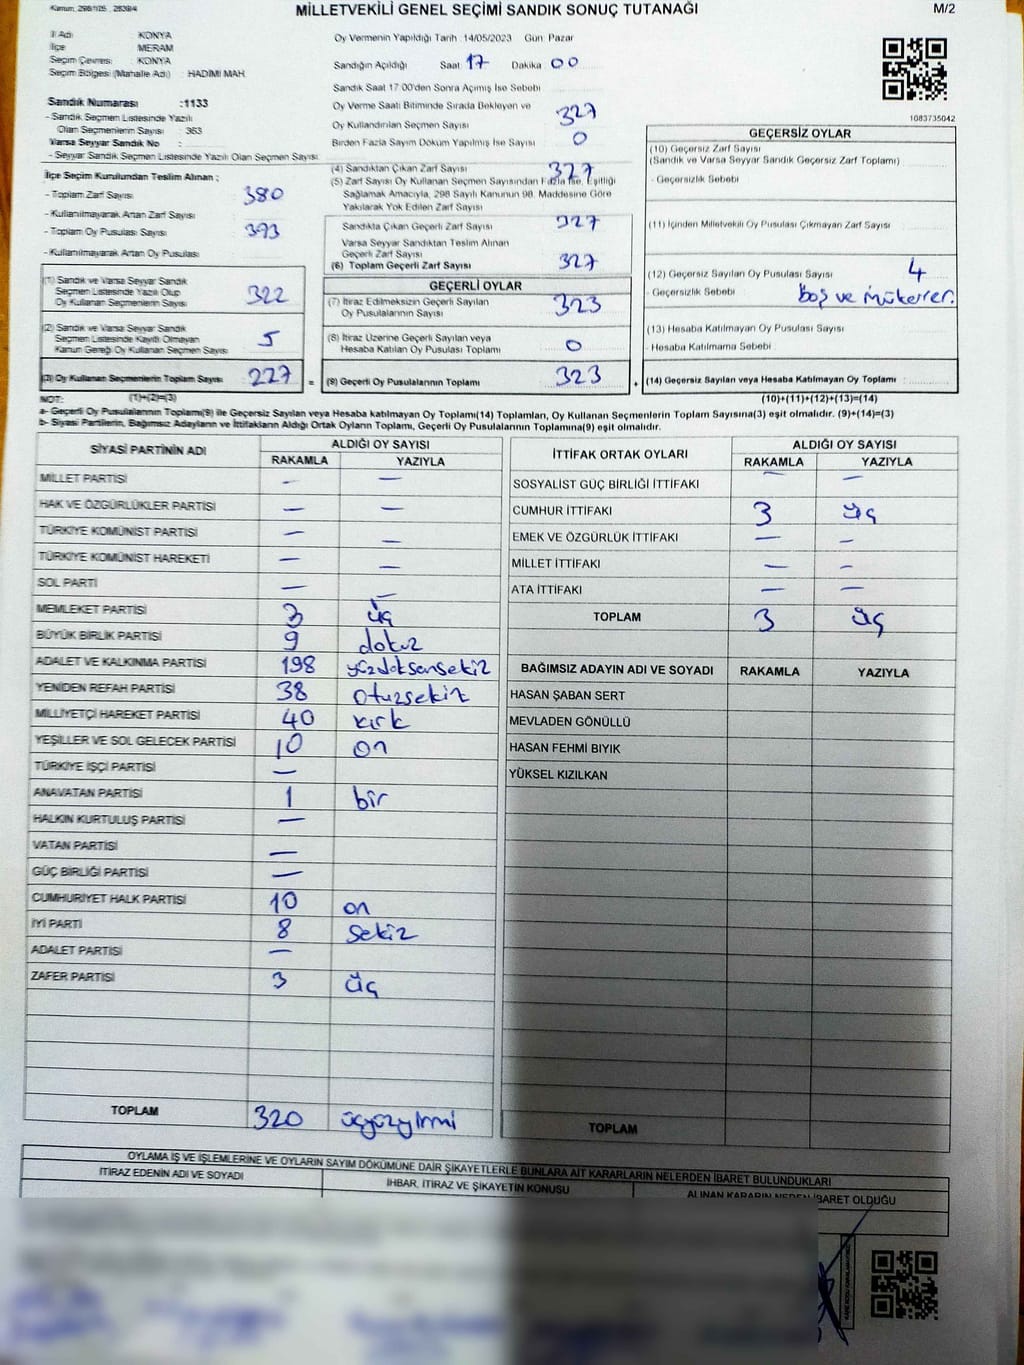 Kanun, 298/1/25 , 2839/4
MİLLETVEKİLİ GENEL SEÇİMİ SANDIK SONUÇ TUTANAĞI
M/2
İl Adı : KONYA
İlçe : MERAM
Seçim Çevresi : KONYA
Seçim Bölgesi (Mahalle Adı) : HADİMİ MAH.
Sandık Numarası :1133
- Sandık Seçmen Listesinde Yazılı
Olan Seçmenlerin Sayısı : 363
Varsa Seyyar Sandık No :
- Seyyar Sandık Seçmen Listesinde Yazılı Olan Seçmen Sayısı:
İlçe Seçim Kurulundan Teslim Alınan ;
- Toplam Zarf Sayısı : 380
- Kullanılmayarak Artan Zarf Sayısı :
- Toplam Oy Pusulası Sayısı : 393
- Kullanılmayarak Artan Oy Pusulası :
(1) Sandık ve Varsa Seyyar Sandık
Seçmen Listesinde Yazılı Olup
Oy Kullanan Seçmenlerin Sayısı : 322
(2) Sandık ve Varsa Seyyar Sandık
Seçmen Listesinde Kayıtlı Olmayan
Kanun Gereği Oy Kullanan Seçmen Sayısı : 5
(3) Oy Kullanan Seçmenlerin Toplam Sayısı : 227 =
Oy Vermenin Yapıldığı Tarih : 14/05/2023 Gün: Pazar
Sandığın Açıldığı Saat: 17 Dakika 00
Sandık Saat 17:00'den Sonra Açımış İse Sebebi :
Oy Verme Saati Bitiminde Sırada Bekleyen ve
Oy Kullandırılan Seçmen Sayısı : 327
Birden Fazla Sayım Döküm Yapılmış İse Sayısı : 0
(4) Sandıktan Çıkan Zarf Sayısı : 327
(5) Zarf Sayısı Oy Kullanan Seçmen Sayısından Fazla İse, Eşitliği
Sağlamak Amacıyla, 298 Sayılı Kanunun 98. Maddesine Göre
Yakılarak Yok Edilen Zarf Sayısı :
Sandıkta Çıkan Geçerli Zarf Sayısı : 327
Varsa Seyyar Sandıktan Teslim Alınan
Geçerli Zarf Sayısı :
(6) Toplam Geçerli Zarf Sayısı : 327
GEÇERLİ OYLAR
(7) İtiraz Edilmeksizin Geçerli Sayılan
Oy Pusulalarının Sayısı : 323
(8) İtiraz Üzerine Geçerli Sayılan veya
Hesaba Katılan Oy Pusulası Toplamı : 0
(9) Geçerli Oy Pusulalarının Toplamı : 323 +
1083735042
GEÇERSİZ OYLAR
(10) Geçersiz Zarf Sayısı
(Sandık ve Varsa Seyyar Sandık Geçersiz Zarf Toplamı) :
- Geçersizlik Sebebi :
(11) İçinden Milletvekili Oy Pusulası Çıkmayan Zarf Sayısı :
(12) Geçersiz Sayılan Oy Pusulası Sayısı : 4
- Geçersizlik Sebebi : boş ve mükerrer.
(13) Hesaba Katılmayan Oy Pusulası Sayısı :
- Hesaba Katılmama Sebebi :
(14) Geçersiz Sayılan veya Hesaba Katılmayan Oy Toplamı :
NOT: (1)+(2)=(3) (10)+(11)+(12)+(13)=(14)
a- Geçerli Oy Pusulalarının Toplamı(9) ile Geçersiz Sayılan veya Hesaba katılmayan Oy Toplamı(14) Toplamları, Oy Kullanan Seçmenlerin Toplam Sayısına(3) eşit olmalıdır. (9)+(14)=(3)
b- Siyasi Partilerin, Bağımsız Adayların ve İttifakların Aldığı Ortak Oyların Toplamı, Geçerli Oy Pusulalarının Toplamına(9) eşit olmalıdır.
SİYASİ PARTİNİN ADI ALDIĞI OY SAYISI
RAKAMLA YAZIYLA
MİLLET PARTİSİ – –
HAK VE ÖZGÜRLÜKLER PARTİSİ – –
TÜRKİYE KOMÜNİST PARTİSİ – –
TÜRKİYE KOMÜNİST HAREKETİ – –
SOL PARTİ – –
MEMLEKET PARTİSİ 3 üç
BÜYÜK BİRLİK PARTİSİ 9 dokuz
ADALET VE KALKINMA PARTİSİ 198 yüzdoksansekiz
YENİDEN REFAH PARTİSİ 38 otuzsekiz
MİLLİYETÇİ HAREKET PARTİSİ 40 kırk
YEŞİLLER VE SOL GELECEK PARTİSİ 10 on
TÜRKİYE İŞÇİ PARTİSİ –
ANAVATAN PARTİSİ 1 bir
HALKIN KURTULUŞ PARTİSİ –
VATAN PARTİSİ –
GÜÇ BİRLİĞİ PARTİSİ –
CUMHURİYET HALK PARTİSİ 10 on
İYİ PARTİ 8 sekiz
ADALET PARTİSİ –
ZAFER PARTİSİ 3 üç
TOPLAM 320 üçyüzyirmi
İTTİFAK ORTAK OYLARI ALDIĞI OY SAYISI
RAKAMLA YAZIYLA
SOSYALİST GÜÇ BİRLİĞİ İTTİFAKI – –
CUMHUR İTTİFAKI 3 üç
EMEK VE ÖZGÜRLÜK İTTİFAKI – –
MİLLET İTTİFAKI – –
ATA İTTİFAKI – –
TOPLAM 3 üç
BAĞIMSIZ ADAYIN ADI VE SOYADI RAKAMLA YAZIYLA
HASAN ŞABAN SERT
MEVLADEN GÖNÜLLÜ
HASAN FEHMİ BIYIK
YÜKSEL KIZILKAN
TOPLAM
OYLAMA İŞ VE İŞLEMLERİNE VE OYLARIN SAYIM DÖKÜMÜNE DAİR ŞİKAYETLERLE BUNLARA AİT KARARLARIN NELERDEN İBARET BULUNDUKLARI
İTİRAZ EDENİN ADI VE SOYADI İHBAR, İTİRAZ VE ŞİKAYETİN KONUSU ALINAN KARARIN NEDEN İBARET OLDUĞU